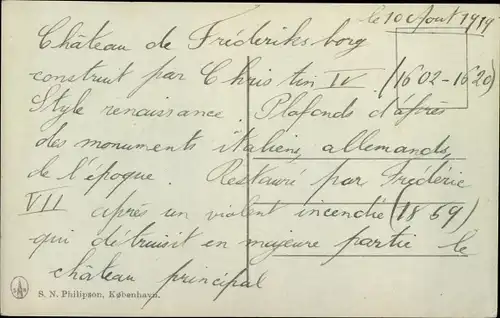 le 10 Aout 1919
Château de Fréderiksborg
construit par Christian IV. (1602-1620)
Style renaissance. Plafonds d'après
des monuments italiens, allemands,
de l'époque. Restauré par Frédéric
VII après un violent incendie (1859)
qui détruisit en majeure partie le
château principal
S. N. Philipson, København.